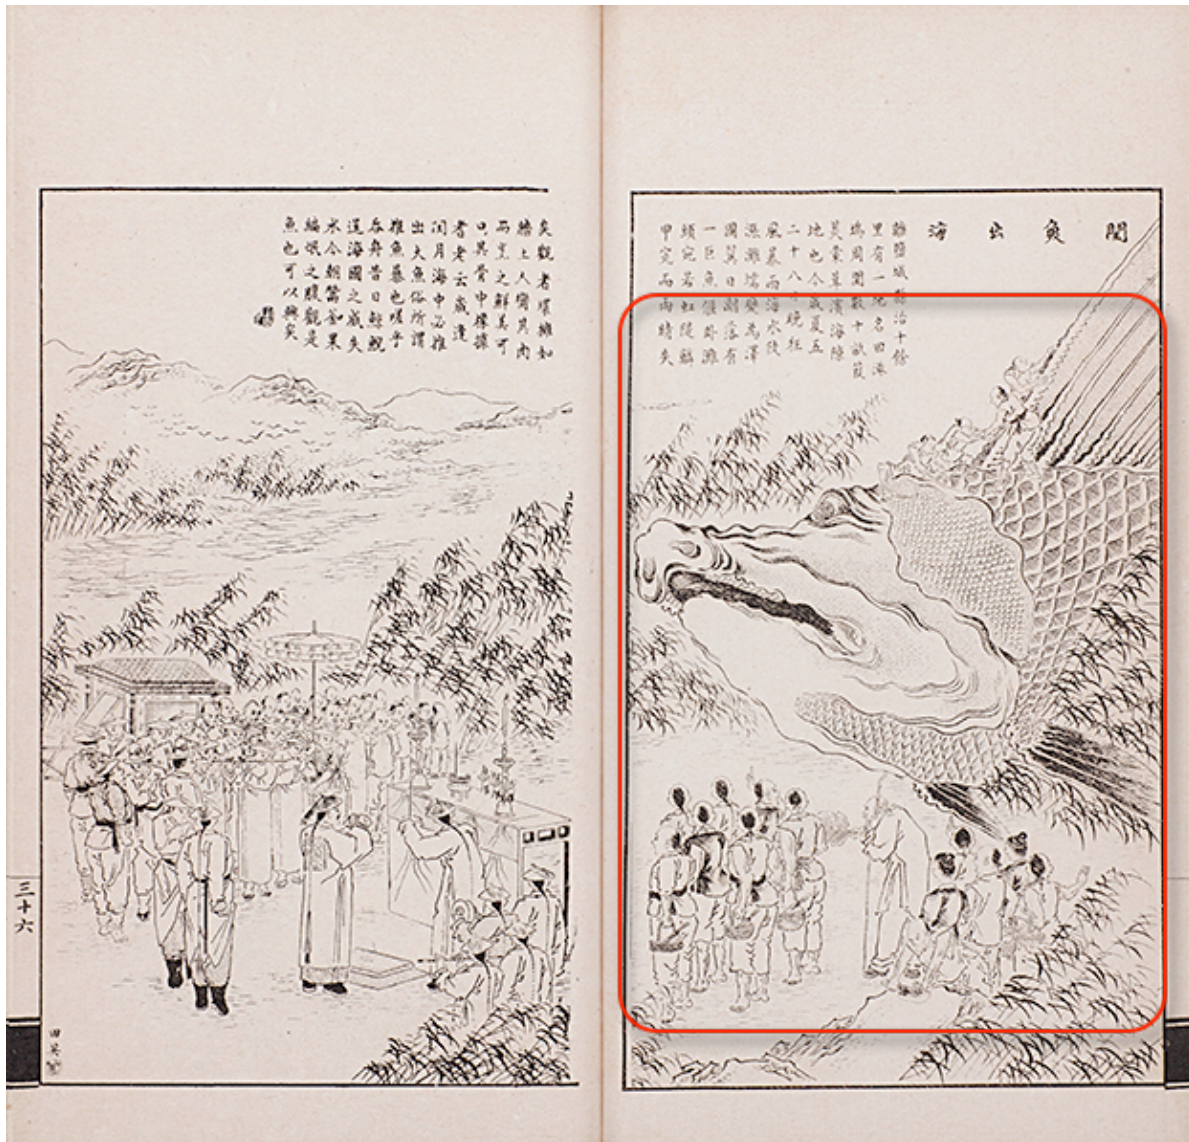 閏魚出海
離鹽城縣治十餘
里有一地名曰
塢周圍數十畝葭
叢草濱海隙
地也今歲夏五
二十八日晚狂
風暴雨海水陡
漲灘壖變為澤
國翼日潮落有
一巨魚僵卧灘
頭宛若虹隄鱗
甲完而兩睛失
矣觀者環擁如
牆土人臠其肉
而烹之鮮美可
口異骨中
耆老云歲逢
閏月海中必推
出大魚俗所謂
推魚暴也嗟乎
吞舟昔日鯨鯢
逞海國之威失
水今朝鬵釜果
編氓之腹觀是
魚也可以興矣
三十六
田英